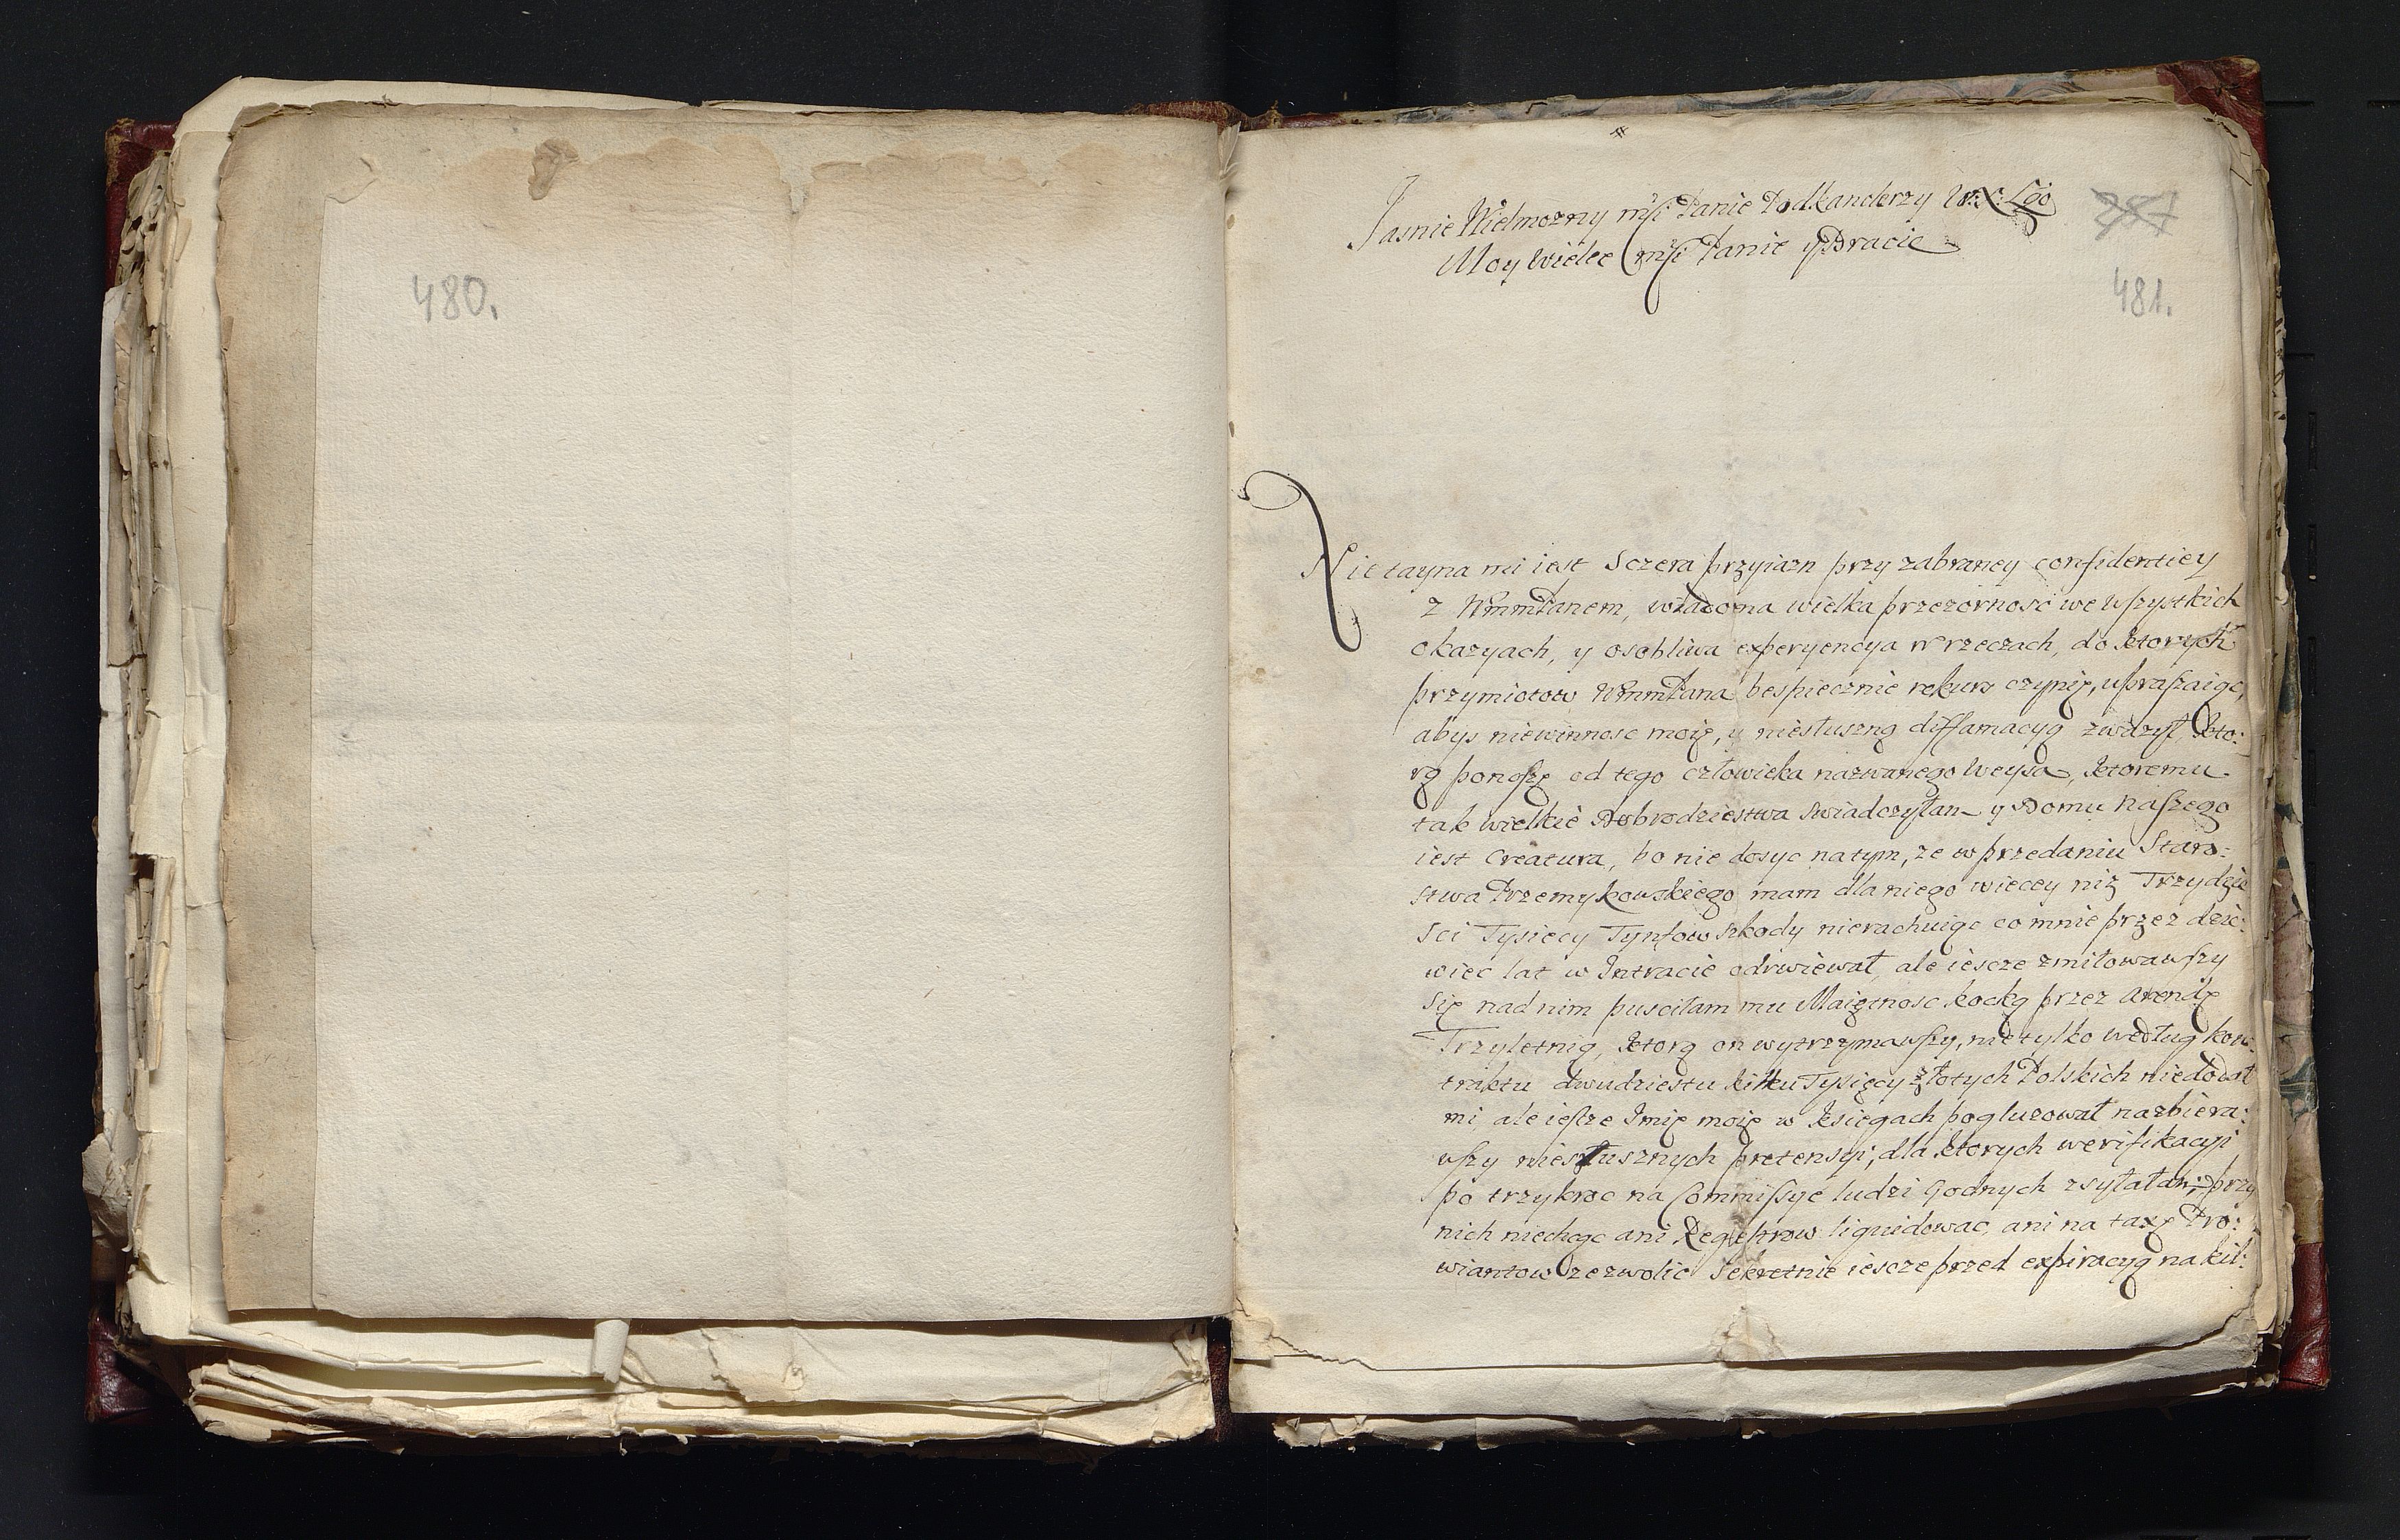 480.
#
Jasnie Wielmozny mśi Panie Podkanclerzy W: X: Lgo
Moy Wielce mśi Panie y Bracie
481.
Nietayna mi iest Sczera przyiazn przy zabraney confidentiey
z WmmPanem, wiadoma wielka przezornosć we wszystkich
okazyach, y osobliwa experyencya w rzeczach, do ktorych
przymiotow WmmPana bespiecznie rekurs czynię, upraszaiąc,
abys niewinnosc moię, y niesłuszną diffamacyą zwazył, kto:
rą ponoszę od tego człowieka nazwanego Weysa, ktoremu
tak wielkie Dobrodziestwa swiadczyłam y Domu naszego
iest Creatura, bo nie dosyc natym, ze w przedaniu Staro:
stwa Przemykowskiego mam dla niego wiecey niż Trzydzie
sci Tysiecy Tynfow szkody nierachuiąc co mnie przez dzie:
wiec lat w Intracie odrwiewał, ale iescze zmiłowawszy
się nad nim pusciłam mu Maiętnosc kocką przez Arendę
Trzyletnią, ktorą on wytrzymawszy, nietylko według kon:
traktu dwudziestu kilku Tysięcy złotych Polskich niedodał
mi, ale ieszcze Imię moię w Ksiegach pogluzował nazbiera:
wszy niesłusznych pretensyi, dla ktorych werifikacyi
po trzykroc na Commissye ludzi Godnych zsyłałam, przy
nich niechcąc ani Regestrow liquidowac, ani na taxę Pro:
wiantow zezwolic Sekretnie iescze przed expiracyą na kil: